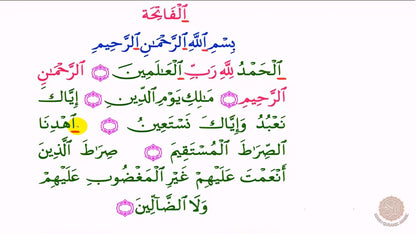 اَلْفَاتِحَة
بِسْمِ اللَّهِ الرَّحْمَٰنِ الرَّحِيمِ
اَلْحَمْدُ لِلَّهِ رَبِّ الْعَالَمِينَ ۝ الرَّحْمَٰنِ
الرَّحِيمِ ۝ مَالِكِ يَوْمِ الدِّينِ ۝ إِيَّاكَ
نَعْبُدُ وَإِيَّاكَ نَسْتَعِينُ ۝ اهْدِنَا
الصِّرَاطَ الْمُسْتَقِيمَ ۝ صِرَاطَ الَّذِينَ
أَنْعَمْتَ عَلَيْهِمْ غَيْرِ الْمَغْضُوبِ عَلَيْهِمْ
وَلَا الضَّالِّينَ ۝